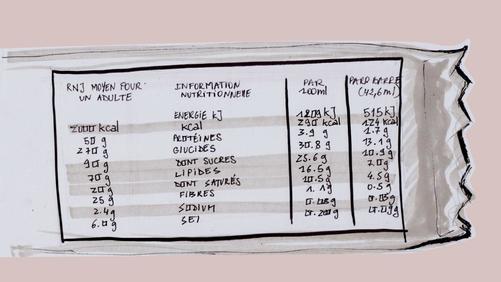 RNJ MOYEN POUR INFORMATION PAR PAR BARRE
UN ADULTE NUTRITIONNELLE 100ml (42,6ml)
ENERGIE kJ 1209 kJ 515 kJ
2000 kcal kcal 290 kcal 124 kcal
50 g PROTÉINES 3.9 g 1.7 g
270 g GLUCIDES 30.8 g 13.1 g
90 g DONT SUCRES 25.6 g 10.9 g
70 g LIPIDES 16.5 g 7.0 g
20 g DONT SATURÉS 10.5 g 4.5 g
25 g FIBRES 1.1 g 0.5 g
2.4 g SODIUM 0.08 g
6.0 g SEL g g